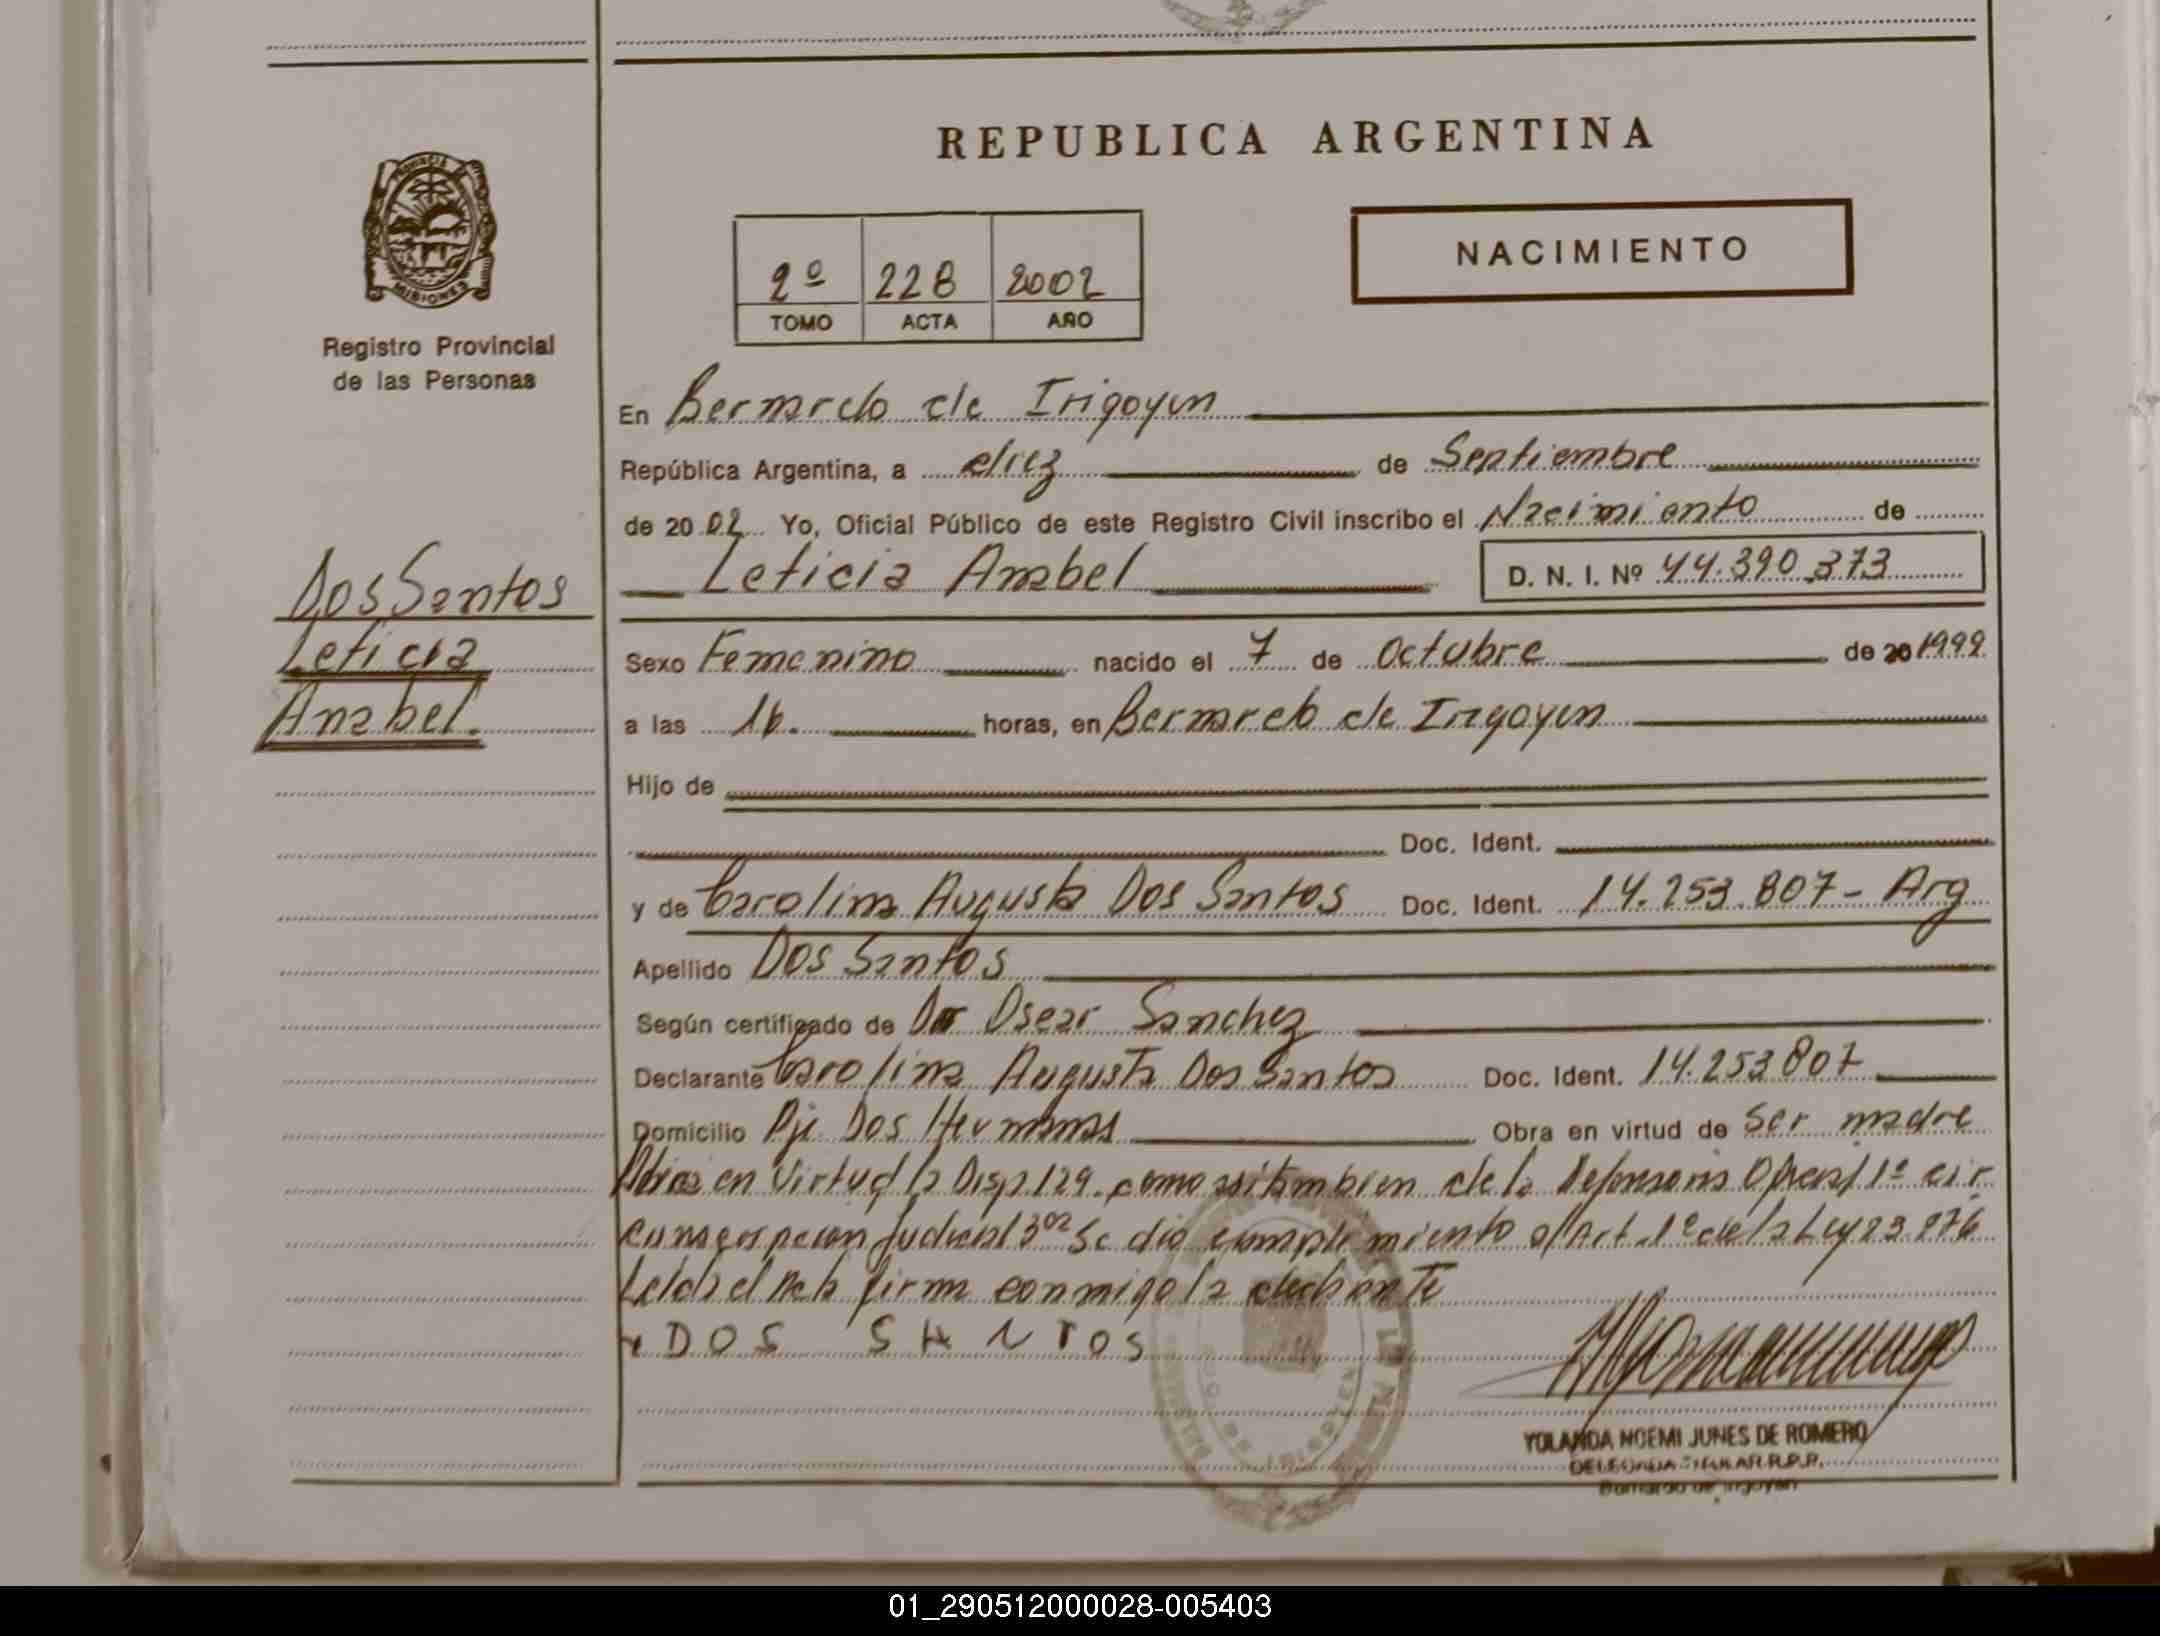 REPUBLICA ARGENTINA
NACIMIENTO
2º 228 2002
TOMO ACTA AÑO
PROVINCIA
MISIONES
Registro Provincial
de las Personas
Dos Santos
Leticia
Anabel.
En Bernardo de Irigoyen
República Argentina, a diez de Septiembre
de 2002 Yo, Oficial Público de este Registro Civil inscribo el Nacimiento de
Leticia Anabel D. N. I. Nº 44.390.373
Sexo Femenino nacido el 7 de Octubre de 20 1999
a las 16. horas, en Bernardo de Irigoyen
Hijo de
Doc. Ident.
y de Carolina Augusta Dos Santos Doc. Ident. 14.253.807 - Arg
Apellido Dos Santos
Según certificado de Dr Oscar Sanchez
Declarante Carolina Augusta Dos Santos Doc. Ident. 14.253807
Domicilio Pje Dos Hermanas Obra en virtud de Ser madre
en Virtud la Disp 129. como asi tambien de la Defensoria Oficial 1º cir
Judicial 302 Se dio cumplimiento al Art. 1º de la Ley 23.276
Leida el Acta firma conmigo la
DOS SANTOS
YOLANDA NOEMI JUNES DE ROMERO
DELEGADA TITULAR R.P.P.
Bernardo de Irigoyen
01_290512000028-005403